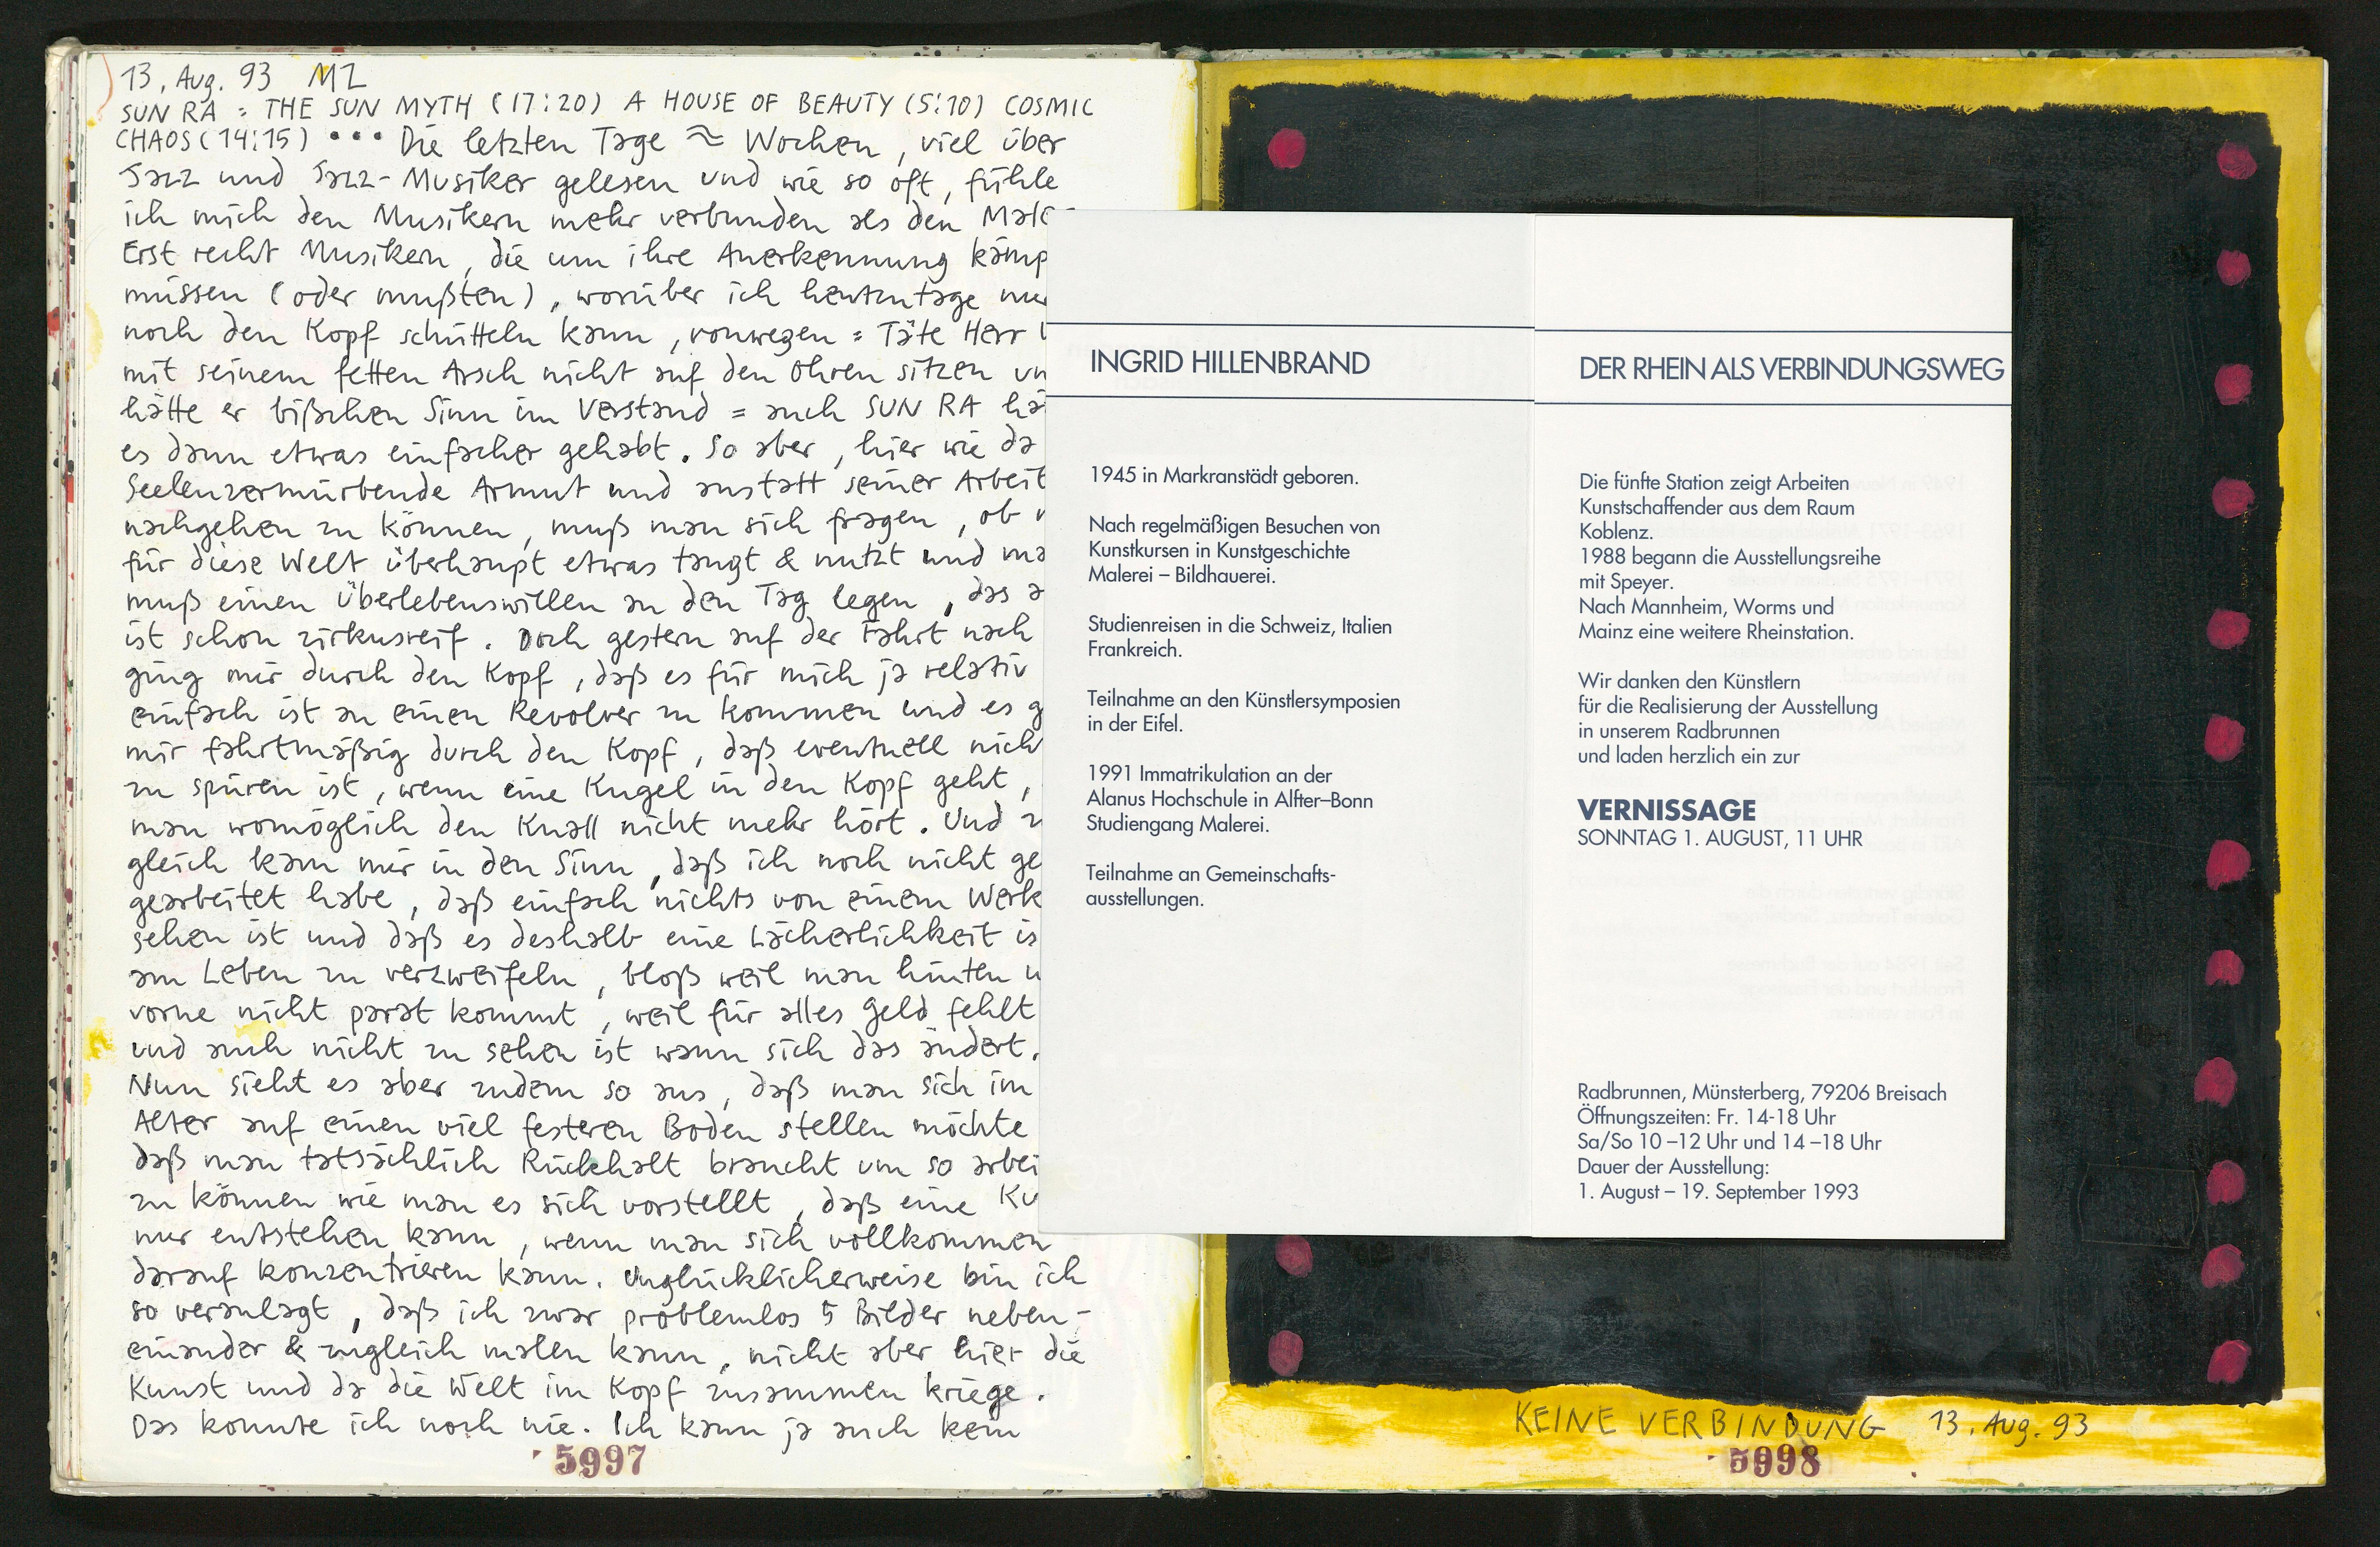 13. Aug. 93 MZ
SUN RA = THE SUN MYTH (17:20) A HOUSE OF BEAUTY (5:10) COSMIC
CHAOS (14:15) ••• Die letzten Tage ≈ Wochen, viel über
Jazz und Jazz-Musiker gelesen und wie so oft, fühle
ich mich den Musikern mehr verbunden als den
Erst recht Musikern, die um ihre Anerkennung
müssen (oder mußten), worüber ich heutzutage
noch den Kopf schütteln kann, vonwegen = Täte Herr
mit seinem fetten Arsch nicht auf den Ohren sitzen
hätte er bißchen Sinn im Verstand = auch SUN RA
es dann etwas einfacher gehabt. So aber, hier wie da
Seelenzermürbende Armut und anstatt seiner Arbeit
nachgehen zu können, muß man sich fragen, ob
für diese Welt überhaupt etwas taugt & nutzt und
muß einen Überlebenswillen an den Tag legen, das
ist schon zirkusreif. Doch gestern auf der Fahrt nach
ging mir durch den Kopf, daß es für mich ja relativ
einfach ist an einen Revolver zu kommen und es
mir fahrtmäßig durch den Kopf, daß eventuell
zu spüren ist, wenn eine Kugel in den Kopf geht,
man womöglich den Knall nicht mehr hört. Und
gleich kam mir in den Sinn, daß ich noch nicht
gearbeitet habe, daß einfach nichts von einem
sehen ist und daß es deshalb eine Lächerlichkeit
am Leben zu verzweifeln, bloß weil man hinten
vorne nicht parat kommt, weil für alles Geld fehlt
und auch nicht zu sehen ist wann sich das ändert.
Nun sieht es aber zudem so aus, daß man sich im
Alter auf einen viel festeren Boden stellen möchte
daß man tatsächlich Rückhalt braucht um so
zu können wie man es sich vorstellt, daß eine
nur entstehen kann, wenn man sich vollkommen
darauf konzentrieren kann. Unglücklicherweise bin ich
so veranlagt, daß ich zwar problemlos 5 Bilder neben-
einander & zugleich malen kann, nicht aber hier die
Kunst und da die Welt im Kopf zusammen kriege.
Das konnte ich noch nie. Ich kann ja auch kein
5997
INGRID HILLENBRAND
1945 in Markranstädt geboren.
Nach regelmäßigen Besuchen von
Kunstkursen in Kunstgeschichte
Malerei – Bildhauerei.
Studienreisen in die Schweiz, Italien
Frankreich.
Teilnahme an den Künstlersymposien
in der Eifel.
1991 Immatrikulation an der
Alanus Hochschule in Alfter–Bonn
Studiengang Malerei.
Teilnahme an Gemeinschafts-
ausstellungen.
DER RHEIN ALS VERBINDUNGSWEG
Die fünfte Station zeigt Arbeiten
Kunstschaffender aus dem Raum
Koblenz.
1988 begann die Ausstellungsreihe
mit Speyer.
Nach Mannheim, Worms und
Mainz eine weitere Rheinstation.
Wir danken den Künstlern
für die Realisierung der Ausstellung
in unserem Radbrunnen
und laden herzlich ein zur
VERNISSAGE
SONNTAG 1. AUGUST, 11 UHR
Radbrunnen, Münsterberg, 79206 Breisach
Öffnungszeiten: Fr. 14-18 Uhr
Sa/So 10 –12 Uhr und 14 –18 Uhr
Dauer der Ausstellung:
1. August – 19. September 1993
KEINE VERBINDUNG 13. Aug. 93
5998